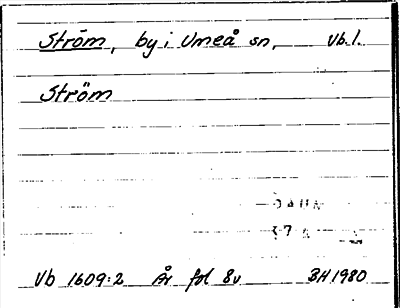 Ström, by i Umeå sn, Vb. l.
Ström
Vb 1609:2 År fol 8v BH 1980